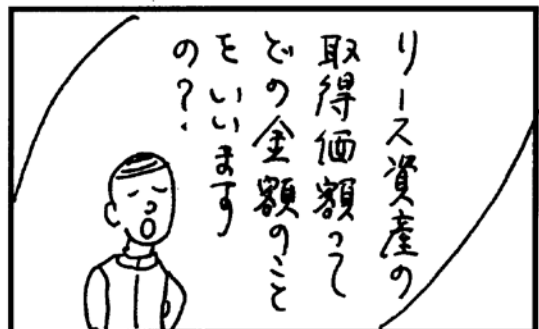 リース資産の
取得価額って
どの金額のこと
をいいます
の?